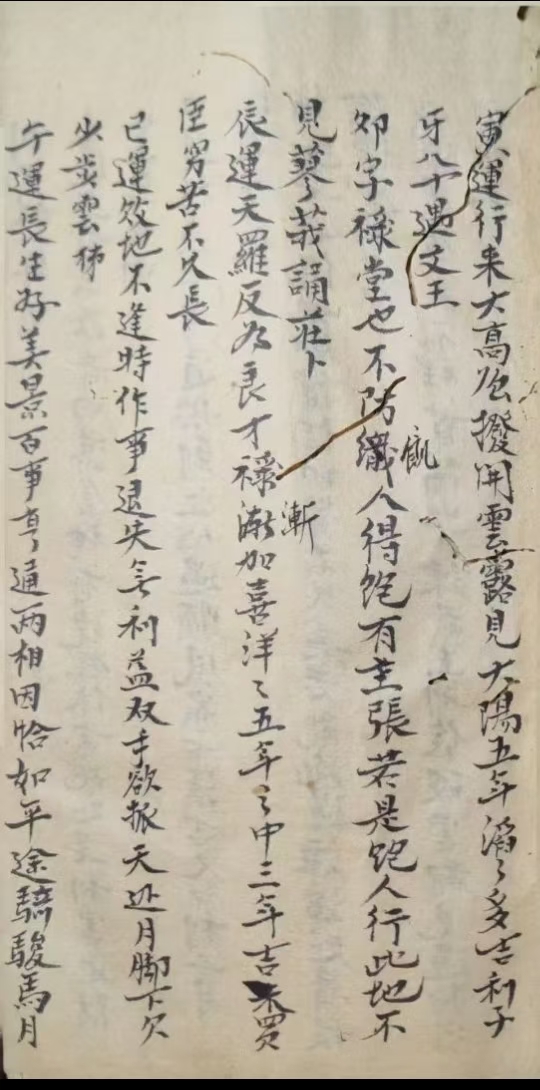 寅運行来大高強撥開雲露見大陽五年滔〻多吉利子
牙八十遇文王
卯字祿堂也不防纎人得飽有主張若是飽人行此地不
飢
見蓼莪誦莊卜
漸
辰運天羅反為良才祿漸加喜洋〻五年之中三年吉朱買
臣窮苦不久長
巳運敗地不逢時作事退失無利益双手欲抓天边月脚下欠
少步雲梯
午運長生好美景百事亨通两相因恰如平途騎駿馬月